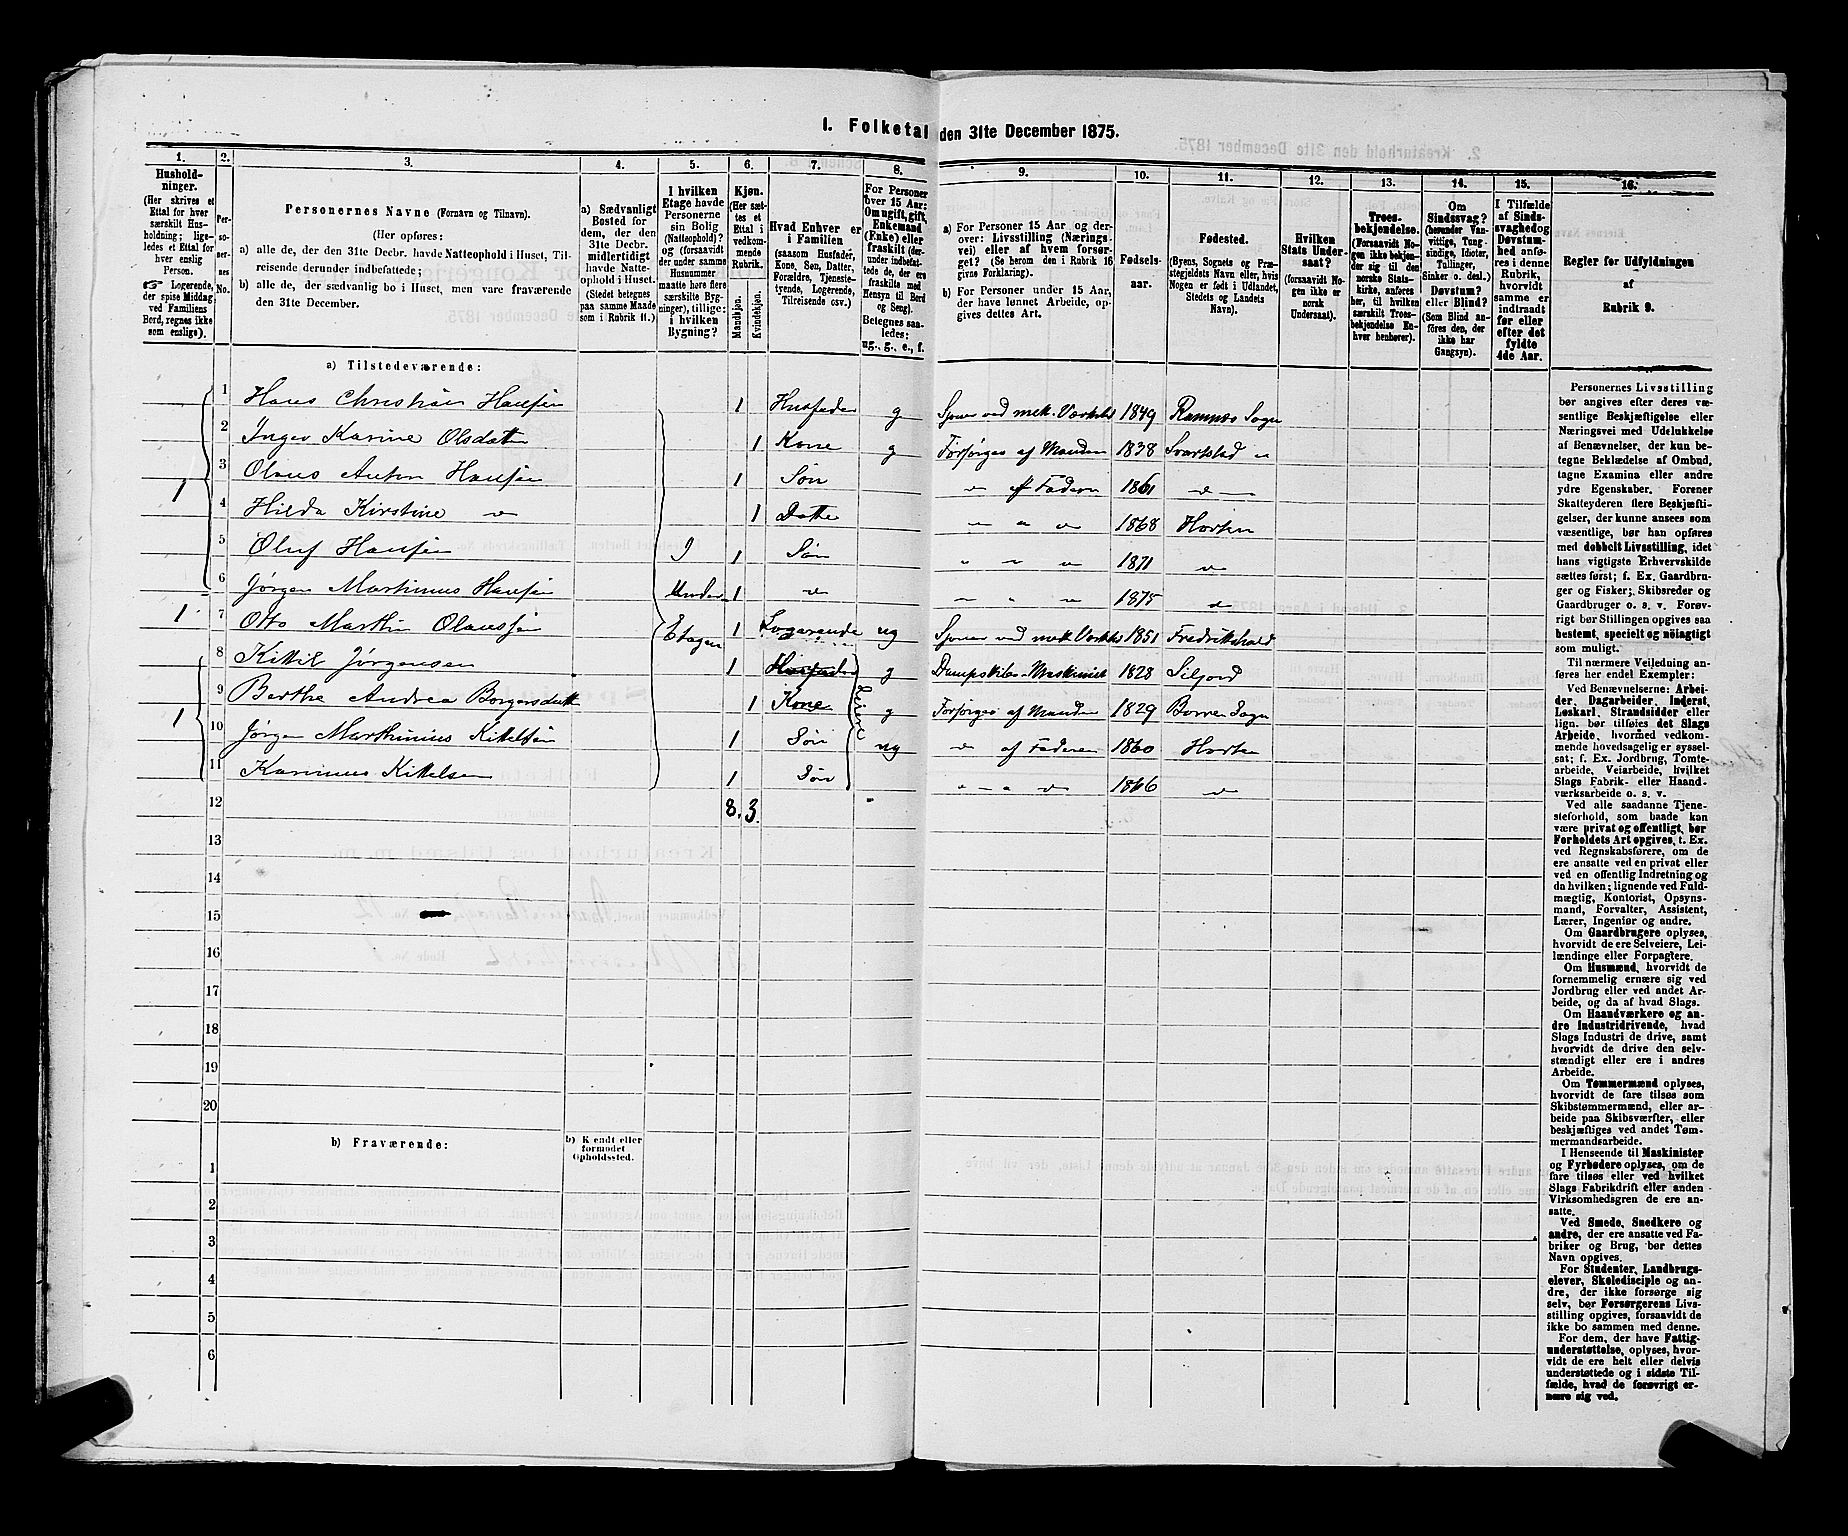 I. Folketal den 31te December 1875.
1. 2. 3. 4. 5. 6. 7. 8. 9. 10. 11. 12. 13. 14. 15. 16.
Hushold-
ninger.
(Her skrives et
Ettal for hver
særskilt Hus-
holdning; lige-
ledes et Ettal for
hver enslig
Person.
☞ Logerende,
der spise Middag
ved Familiens
Bord, regnes ikke
som enslige).
Per-
so-
ner-
nes
No.
Personernes Navne (Fornavn og Tilnavn).
(Her opføres:
a) alle de, der den 31te Decbr. havde Natteophold i Huset, Til-
reisende derunder indbefattede;
b) alle de, der sædvanlig bo i Huset, men vare fraværende
den 31te December.
a) Sædvanligt
Bosted for
dem, der den
31te Decbr.
midlertidigt
havde Natte-
ophold i Huset.
(Stedet betegnes
paa samme Maade
som i Rubrik 11.)
I hvilken
Etage havde
Personerne
sin Bolig
(Natteophold)?
(forsaavidt
der under samme
Husnummer
maatte høre flere
særskilte Byg-
ninger), tillige:
i hvilken
Bygning?
Kjøn.
(Her sæt-
tes et
Ettal i
vedkom-
mende
Rubrik.
Mandkjøn.
Kvindekjøn.
Hvad Enhver er
i Familien
(saasom Husfader,
Kone, Søn, Datter,
Forældre, Tjeneste-
tyende, Logerende,
Tilreisende osv.)
For Personer
over 15 Aar:
Om ugift, gift,
Enkemand
(Enke) eller
fraskilt (der-
under indbefat-
tede de, der ere
fraskilte med
Hensyn til Bord
og Seng).
Betegnes saa-
ledes:
ug., g., e., f.
a) For Personer 15 Aar og der-
over: Livsstilling (Nærings-
vei) eller af hvem forsør-
get? (Se herom den i Rubrik 16
givne Forklaring).
b) For Personer under 15 Aar,
der have lønnet Arbeide, op-
gives dettes Art.
Fødsels-
aar.
Fødested.
(Byens, Sognets og Præ-
stegjeldets Navn eller, hvis
Nogen er født i Udlandet,
Stedets og Landets
Navn).
Hvilken
Stats Under-
saat?
(forsaavidt No-
gen ikke er
norsk
Undersaat).
Troes-
bekjendelse.
(Forsaavidt No-
gen ikke bekjen-
der sig til den
norske Stats-
kirke, anføres
her, til hvilken
særskilt Troes-
bekjendelse En-
hver henhører).
Om
Sindssvag?
(herunder Van-
vittige, Tung-
sindige, Idioter,
Tullinger,
Sinker o. desl.)
Døvstum?
eller Blind?
(Som Blind an-
føres den, der
ikke har
Gangsyn).
I Tilfælde
af Sinds-
svaghed og
Døvstum-
hed anfø-
res i denne
Rubrik,
hvorvidt
samme er
indtraadt
før eller
efter det
fyldte
4de Aar.
Regler for Udfyldningen
af
Rubrik 9.
a) Tilstedeværende:
1 Hans Christian Hansen 1 Husfader g Sjouer ved mek. Værksted 1849 Ramnæs Sogn
2 Inger Karine Olsdatt 1 Kone g Forsørges af Manden 1838 Svartstad "
3 Olaus Anton Hansen 1 Søn do af Faderen 1861 do
1 4 Hilda Kirstine do 1 Datte " " do 1868 Horten
5 Oluf Hansen I 1 Søn " " do 1871 do
6 Jørgen Marthinius Hansen Under 1 do " " do 1875 do
1 7 Otto Marthin Olaussen Etagen 1 Logerende ug Sjouer ved mek Værksted 1851 Fredrikshald
8 Kittil Jørgensen 1 Husfader g Dampskibs-Maskinist 1828 Siljord
9 Berthe Andrea Borgersdatt 1 Kone g Forsørges af Manden 1829 Borre Sogn
1 10 Jørgen Marthinius Kittelsen 1 Søn ug do af Faderen 1860 Horten
11 Karinius Kittelsen 1 Søn " " do 1866 do
12 8. 3
13
14
15
16
17
18
19
20
b) Fraværende:
b) Kjendt eller
formodet
Opholdssted.
1
2
3
4
5
6
Personernes Livsstilling
bør angives efter deres væ-
sentlige Beskjæftigelse eller
Næringsvei med Udelukkelse
af Benævnelser, der kun be-
tegne Beklædelse af Ombud,
tagne Examina eller andre
ydre Egenskaber. Forener
Skatteyderen flere Beskjæfti-
gelser, der kunne ansees som
væsentlige, bør han opføres
med dobbelt Livsstilling, idet
hans vigtigste Erhvervskilde
sættes først; f. Ex. Gaardbru-
ger og Fisker; Skibsreder og
Gaardbruger o. s. v. Forøv-
rigt bør Stillingen opgives saa
bestemt, specielt og nöiagtigt
som muligt.
Til nærmere Veiledning an-
føres her endel Exempler:
Ved Benævnelserne: Arbei-
der, Dagarbeider, Inderst,
Løskarl, Strandsidder eller
lign. bør tilføies det Slags
Arbeide, hvormed vedkom-
mende hovedsagelig er syssel-
sat; f. Ex. Jordbrug, Tomte-
arbeide, Veiarbeide, hvilket
Slags Fabrik- eller Haand-
værksarbeide o. s. v.
Ved alle saadanne Tjene-
steforhold, som baade kan
være privat og offentligt, bør
Forholdets Art opgives, t. Ex.
ved Regnskabsførere, om de
ere ansatte ved en privat eller
ved en offentlig Indretning og
da hvilken; lignende ved Fuld-
mægtig, Kontorist, Opsyns-
mand, Forvalter, Assistent,
Lærer, Ingeniør og andre.
Om Gaardbrugere oplyses,
hvorvidt de ere Selveiere, Lei-
lændinge eller Forpagtere.
Om Husmænd, hvorvidt de
fornemmelig ernære sig ved
Jordbrug eller ved andet Ar-
beide, og da af hvad Slags.
Om Haandværkere og an-
dre Industridrivende, hvad
Slags Industri de drive, samt
hvorvidt de drive den selv-
stændigt eller ere i andres
Arbeide.
Om Tømmermænd oplyses,
hvorvidt de fare tilsøs som
Skibstømmermænd, eller ar-
beide paa Skibsværfter, eller
beskjæftiges ved andet Tøm-
mermandsarbeide.
I Henseende til Maskinister
og Fyrbødere oplyses, om de
fare tilsøs eller ved hvilket
Slags Fabrikdrift eller anden
Virksomhedsgren de ere an-
satte.
Ved Smede, Snedkere og
andre, der ere ansatte ved Fa-
briker og Brug, bør dettes
Navn opgives.
For Studenter, Landbrugs-
elever, Skoledisciple og an-
dre, der ikke forsørge sig
selv, bør Forsørgerens Livs-
stilling opgives, forsaavidt de
ikke bo sammen med denne.
For dem, der have Fattig-
understøttelse, oplyses, hvor-
vidt de ere helt eller delvis
understøttede og i sidste Til-
fælde, hvad de forøvrigt er-
nære sig ved.